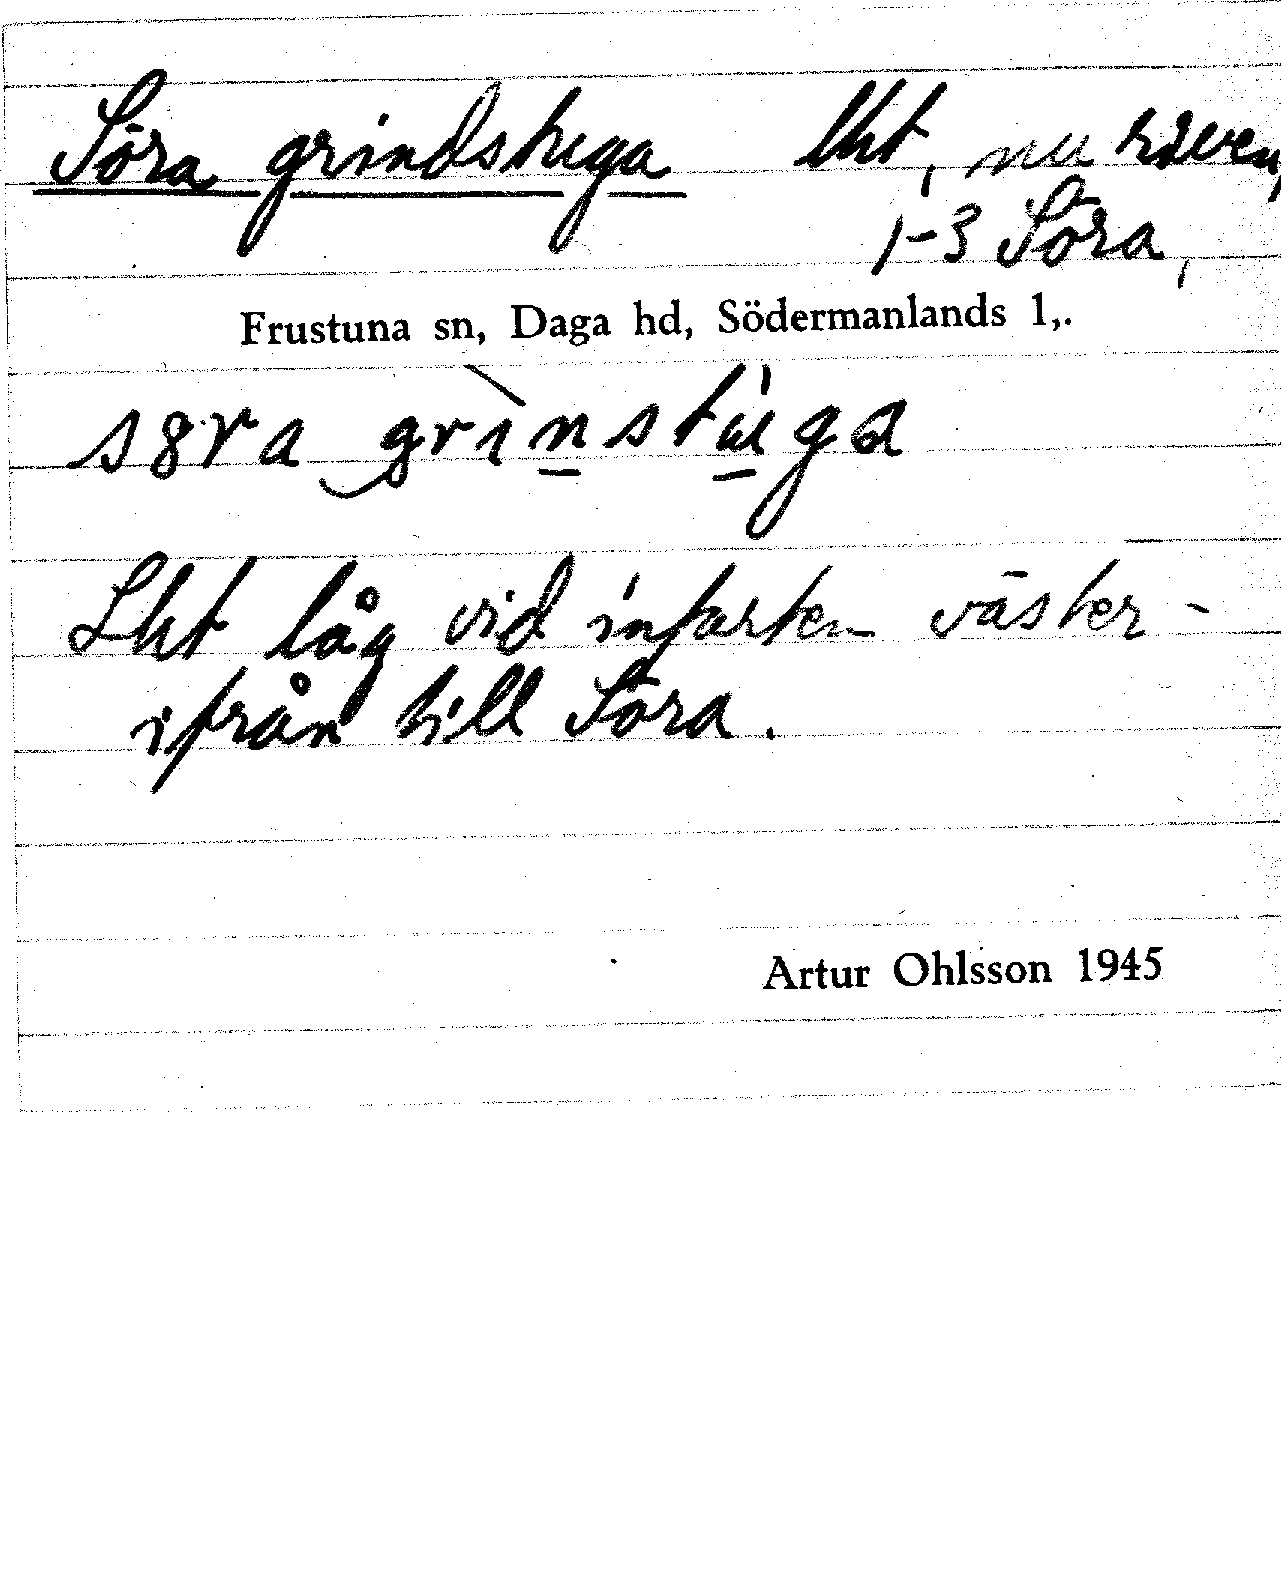 Söra grindstuga lht, nu riven,
1-3 Söra,
Frustuna sn, Daga hd, Södermanlands l,.
s8ra grìnstùga
Lht låg vid infarten väster-
ifrån till Söra.
Artur Ohlsson 1945